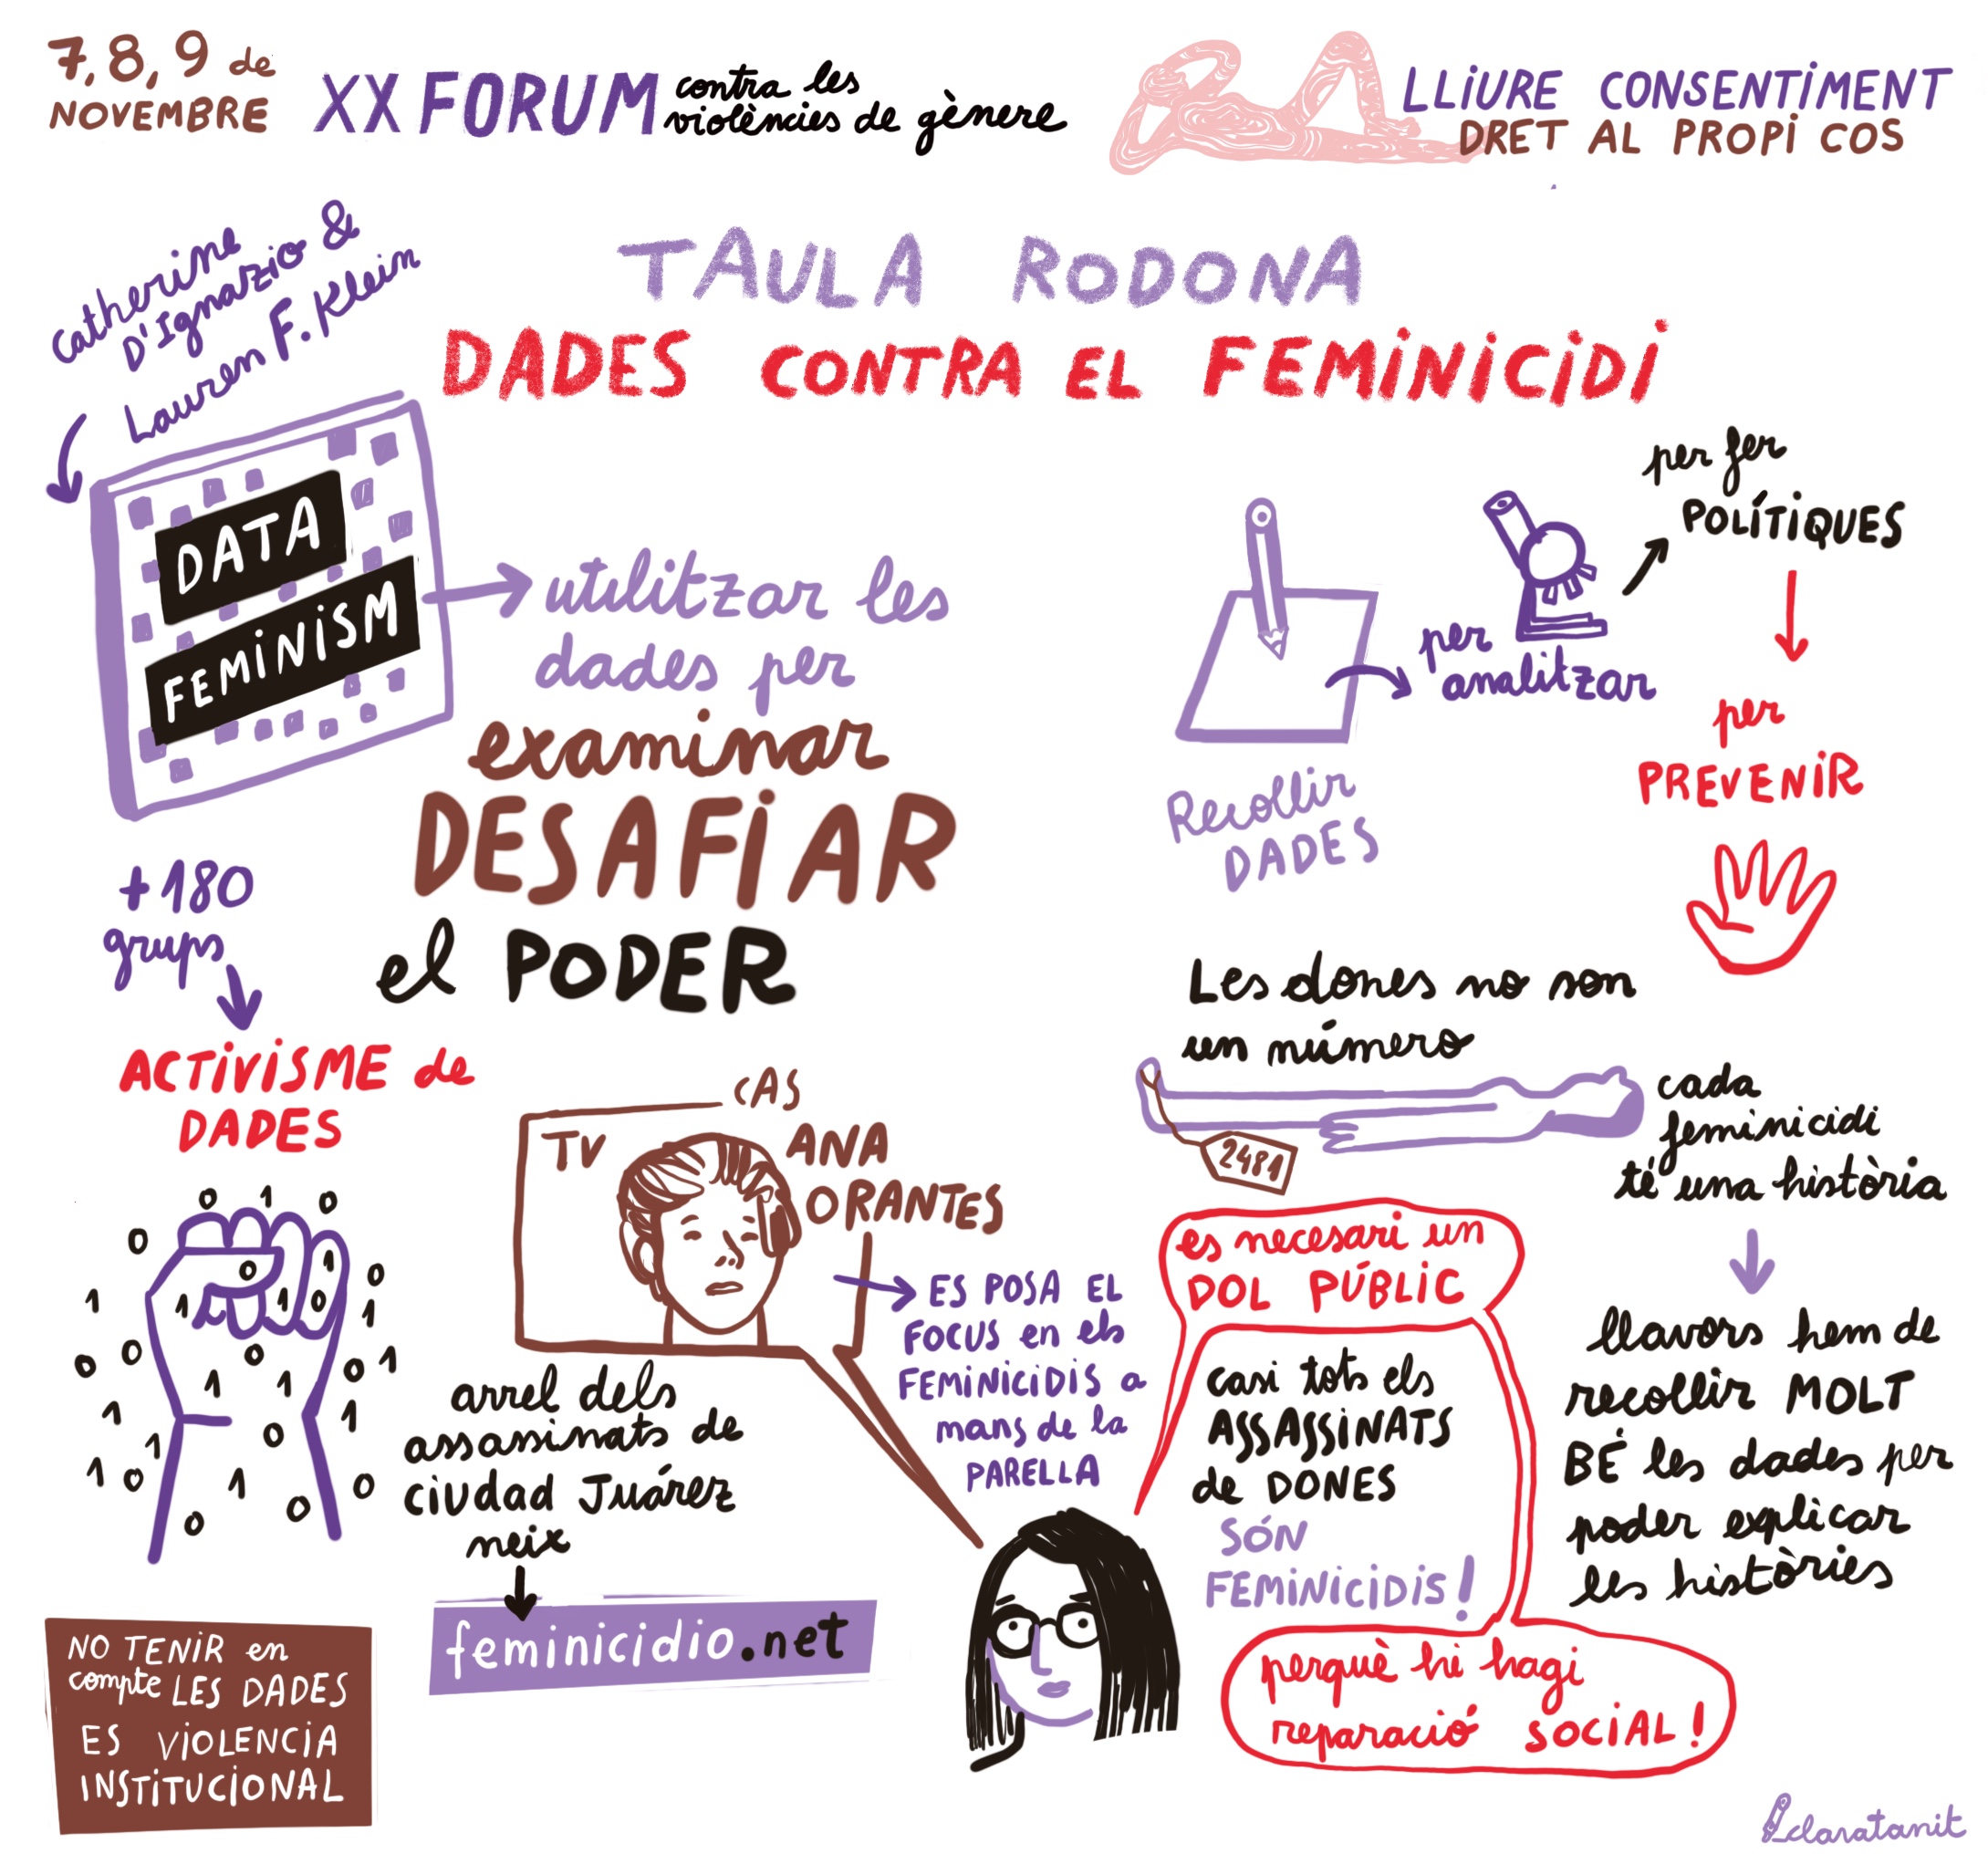 7, 8, 9 de
NOVEMBRE
XX FORUM
contra les
violències de gènere
LLIURE CONSENTIMENT
DRET AL PROPI COS
TAULA RODONA
DADES CONTRA EL FEMINICIDI
Catherine
D'Ignazio &
Lauren F. Klein
DATA
FEMINISM
utilitzar les
dades per
examinar
DESAFIAR
el PODER
Recollir
DADES
per
analitzar
per fer
POLÍTIQUES
per
PREVENIR
+180
grups
ACTIVISME de
DADES
0 1 0
0
0
1 0
1 1 1 0 0
1
0 0 0 0 1
1 1
1 0 1
1
1 0 1 0
0
0
NO TENIR en
compte LES DADES
ES VIOLENCIA
INSTITUCIONAL
TV
CAS
ANA
ORANTES
ES POSA EL
FOCUS en els
FEMINICIDIS a
mans de la
PARELLA
arrel dels
assassinats de
ciudad Juárez
neix
feminicidio.net
Les dones no son
un número
2481
cada
feminicidi
té una història
llavors hem de
recollir MOLT
BÉ les dades per
poder explicar
les històries
es necesari un
DOL PÚBLIC
casi tots els
ASSASSINATS
de DONES
SÓN
FEMINICIDIS!
perquè hi hagi
reparació SOCIAL!
claratanit